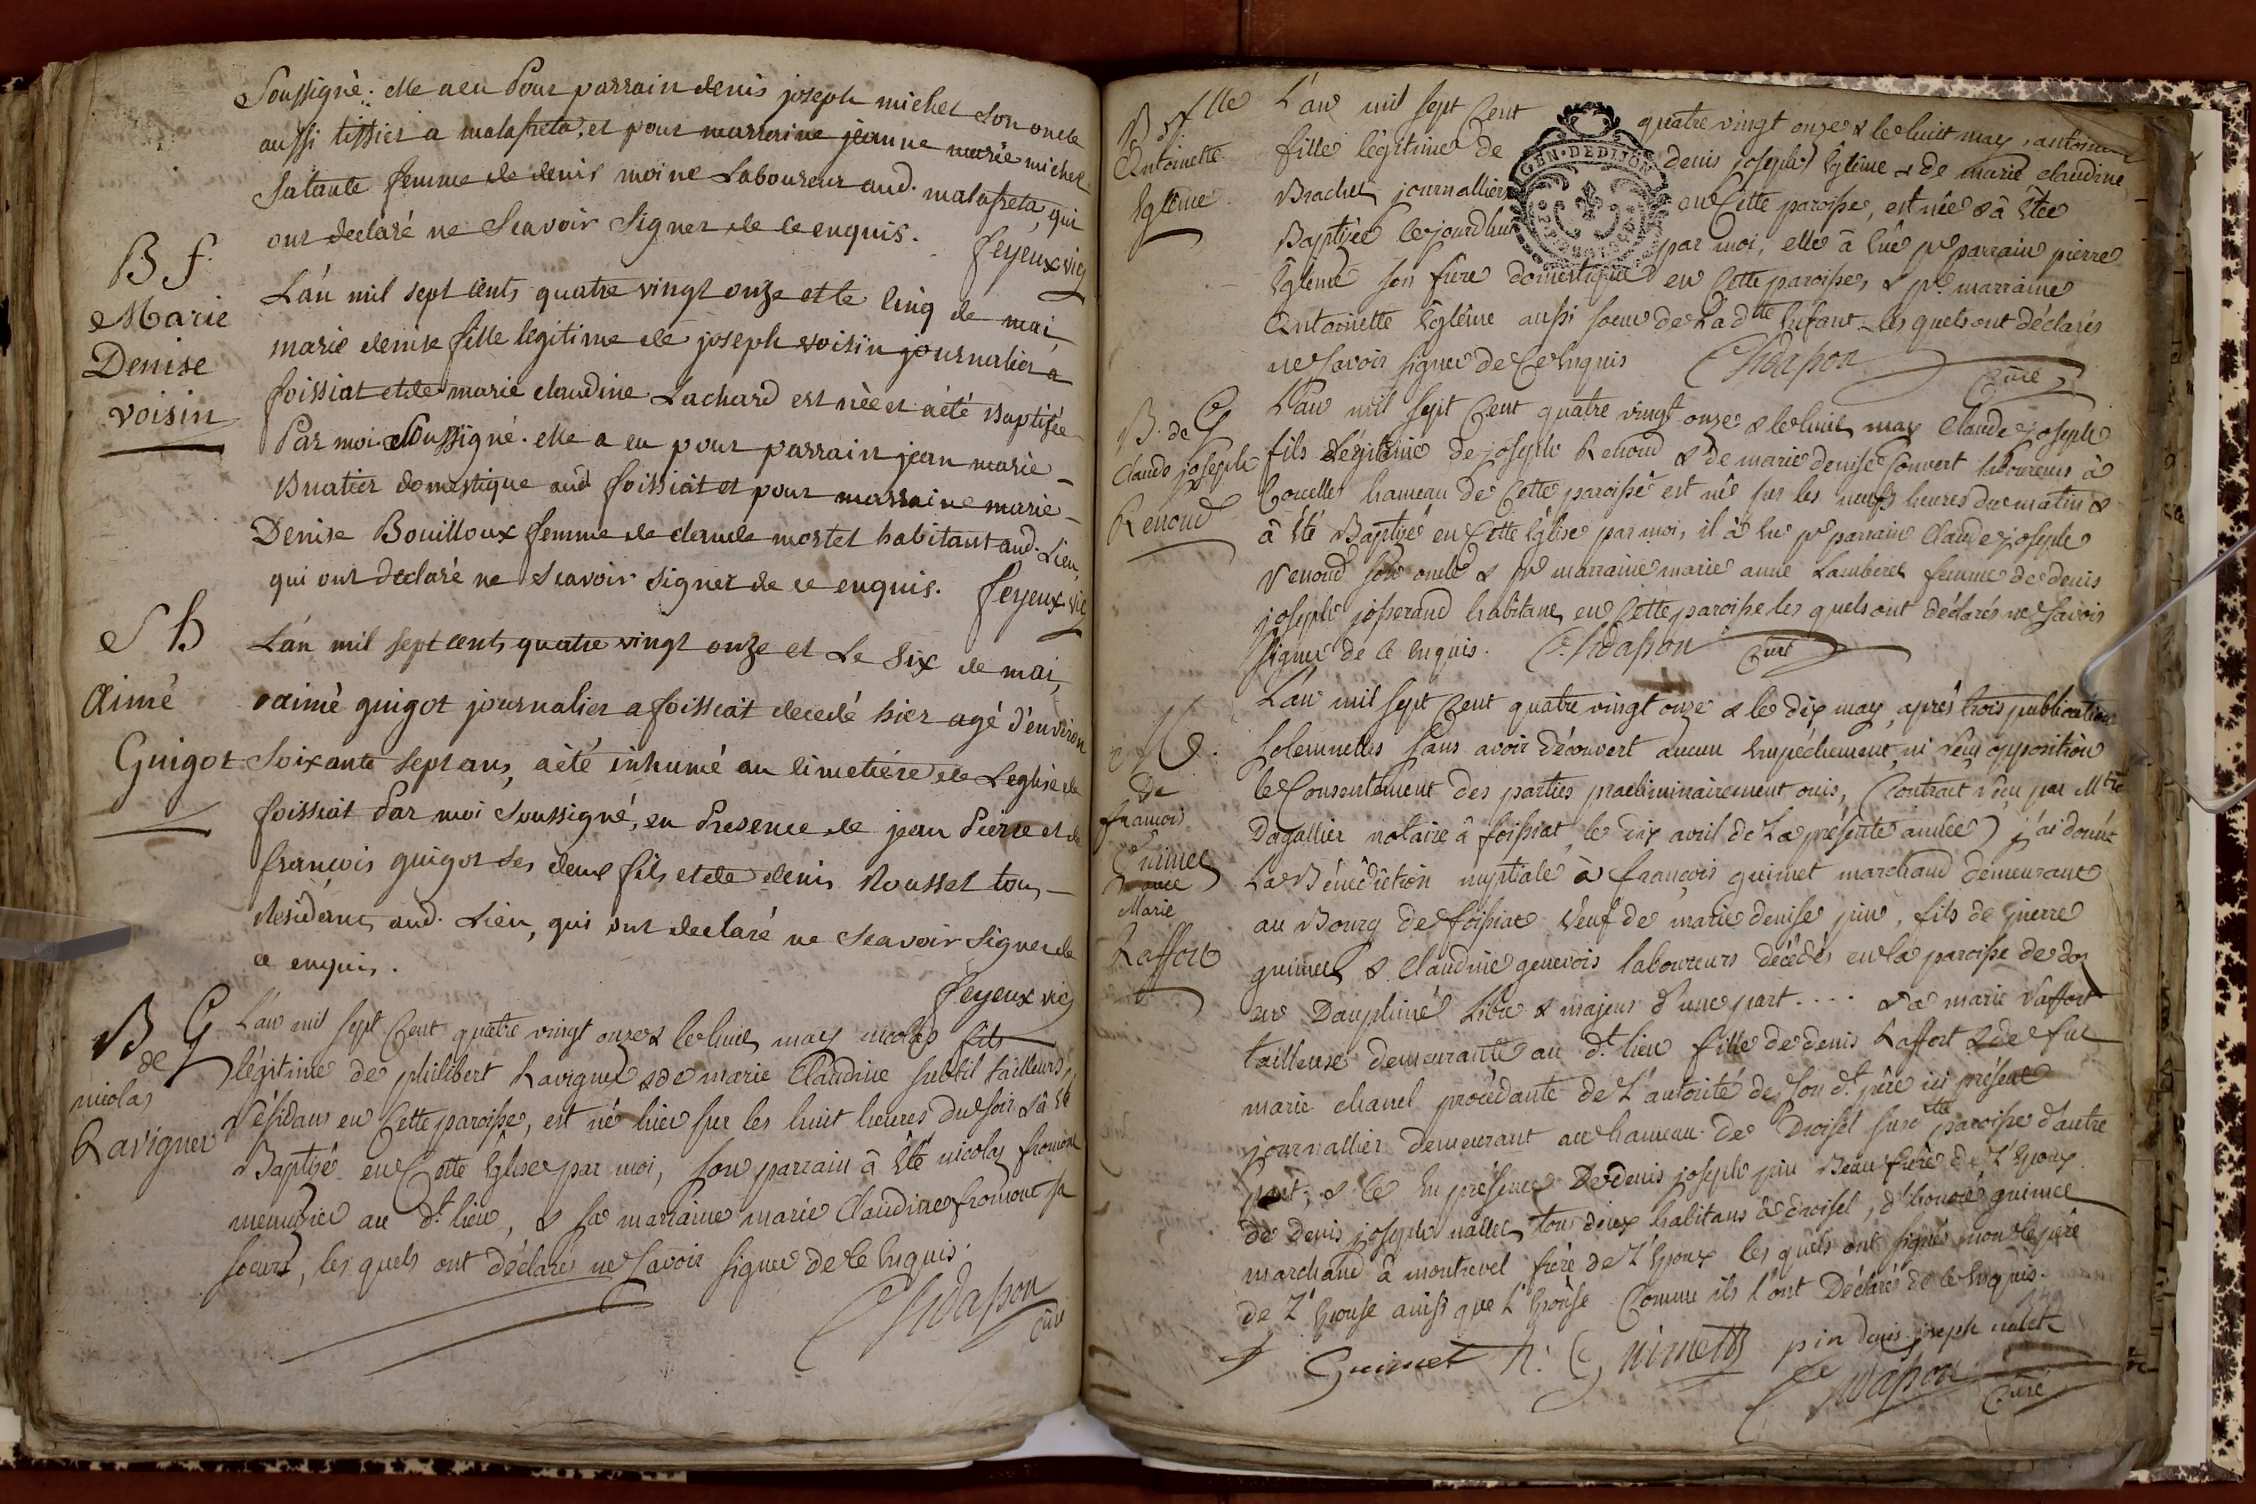 Soussigné. elle a eu Pour parrain denis joseph michel son oncle
aussi tissier a malafreta, et pour marraine jeanne marie michel
sa tante femme de denis moine Laboureur aud. malafreta, qui
ont declaré ne Scavoir Signer de ce enquis.
feyeux vic
B f.
Marie
Denise
voisin
L'an mil sept cents quatre vingt onze et le cinq de mai
marie denise fille legitime de joseph voisin journalier a
foissiat et de marie claudine Lachard est née et a été Baptisée
Par moi Soussigné. elle a eu pour parrain jean marie
Buatier domestique aud foissiat et pour marraine marie
Denise Bouilloux femme de claude mortel habitant aud. Lieu,
qui ont declaré ne Scavoir signer de ce enquis. feyeux vic
S h
Aimé
Guigot
L'an mil sept cents quatre vingt onze et Le Six de mai,
aimé guigot journalier a foissiat decedé hier agé d'environ
Soixante sept ans, a été inhumé au cimetière de L'eglise de
foissiat Par moi Soussigné, en Presence de jean Pierre et de
francois guigot ses deux fils et de denis Rousset tous
Residants aud. Lieu, qui ont declaré ne Scavoir Signer de
ce enquis.
feyeux vic
B G
de
nicolas
Ravignet
L'an mil sept Cent quatre vingt onze & le huit may nicolas fils
légitime de philibert Ravignet & de marie Claudine subtil tailleurs
résidans en Cette paroisse, est né hier sur les huit heures du soir & à été
Baptisé en Cette église par moi, son parrain à été nicolas fromont
menuisier au dt. lieu, & sa marraine marie Claudine fromont sa
soeur, les quels ont déclarés ne savoir signer de ce enquis.
Chidasson
Curé
B f lle
Antoinette
églème
L'an mil sept Cent quatre vingt onze & le huit may, antoinette
GEN. DE DIJON
fille légitime de denis joseph églême & de marie claudine
Brachet journallier en Cette paroisse, est née & à étée
Baptisée le jourdhui par moi, elle à eüe pr parrain pierre
églême son frère domestique en Cette paroisse, & pr. marraine
Antoinette églême aussi soeur de Ladtte enfant les quels ont déclarés
ne savoir signer de Ce enquis Chidasson
Curé
B. de G
Claude joseph
Renoud
L'an mil sept Cent quatre vingt onze & le huit may Claude joseph
fils Légitime de joseph Renoud & de marie denise Convert laboureurs à
Corcelles hameau de Cette paroisse est né sur les neuf heures du matin &
à été Baptisé en Cette église par moi, il à eu pr parrain Claude joseph
renoud son oncle & pr marraine marie anne Lamberet femme de denis
joseph josserand habitans en Cette paroisse les quels ont déclarés ne savoir
signer de ce enquis. Chidasson Curé
M.
De
francois
Guimet
avec
Marie
Raffort
L'an mil sept Cent quatre vingt onze & le dix may, après trois publications
solemnelles sans avoir découvert aucun empéchement, ni reçu opposition
le Consentement des parties praeliminairement ouis, (Contrat reçu par Mtre
Dagallier notaire à foissiat le dix avril de La présente année) j'ai donné
La Bénédiction nuptiale à françois guimet marchand demeurant
au Bourg de foissiat veuf de marie denise pin, fils de pierre
guimet & Claudine genevois laboureurs décédés en la paroisse de
en Dauphiné Libre & majeur d'une part.... & à marie raffort
tailleuse demeurante au dt. lieu fille de denis Raffort & de fue
marie chanel procédante de L'autorité de son dt. père ici présent
journallier demeurant au hameau de Droisel sur cette paroisse d'autre
part; & Ce en présence De denis joseph pin Beaufrère de L'époux
de denis joseph nallet tous deux habitans à droisel, d'honoré guimet
marchand à montrevel frère de L'époux les quels ont signés non le père
de L'épouse ainsi que L'épouse Comme ils l'ont Déclaré de ce enquis.
f Guimet h. Guimett pin denis joseph nalet
Chidasson
Curé